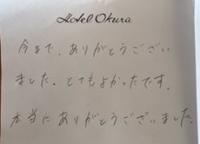 Hotel Okura
今まで、ありがとうござい
ました。とてもよかったです。
本当にありがとうございました。